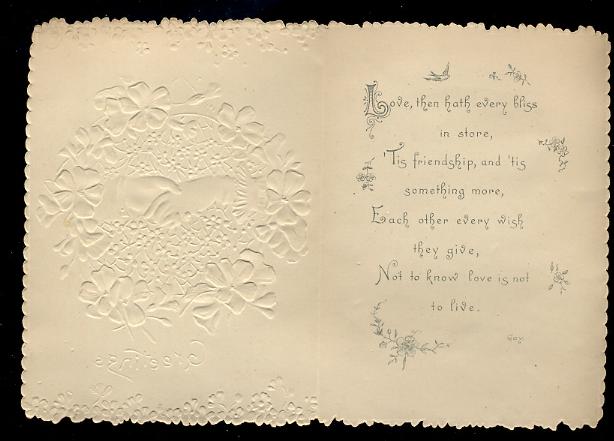 Greetings
Love, then hath every bliss
in store,
'Tis friendship, and 'tis
something more,
Each other every wish
they give,
Not to know love is not
to live.
Gay.